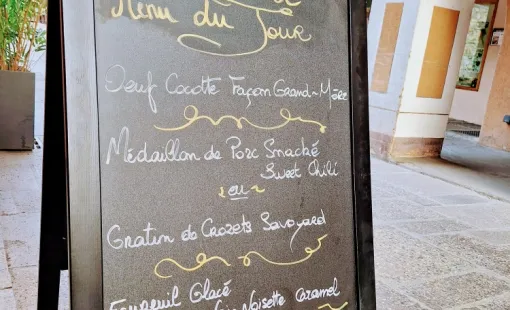 Menu du Jour
Oeuf Cocotte Façon Grand-Mère
Médaillon de Porc Snacké
Sweet Chili
ou
Gratin de Crozets Savoyard
Glacé
Noisette Caramel